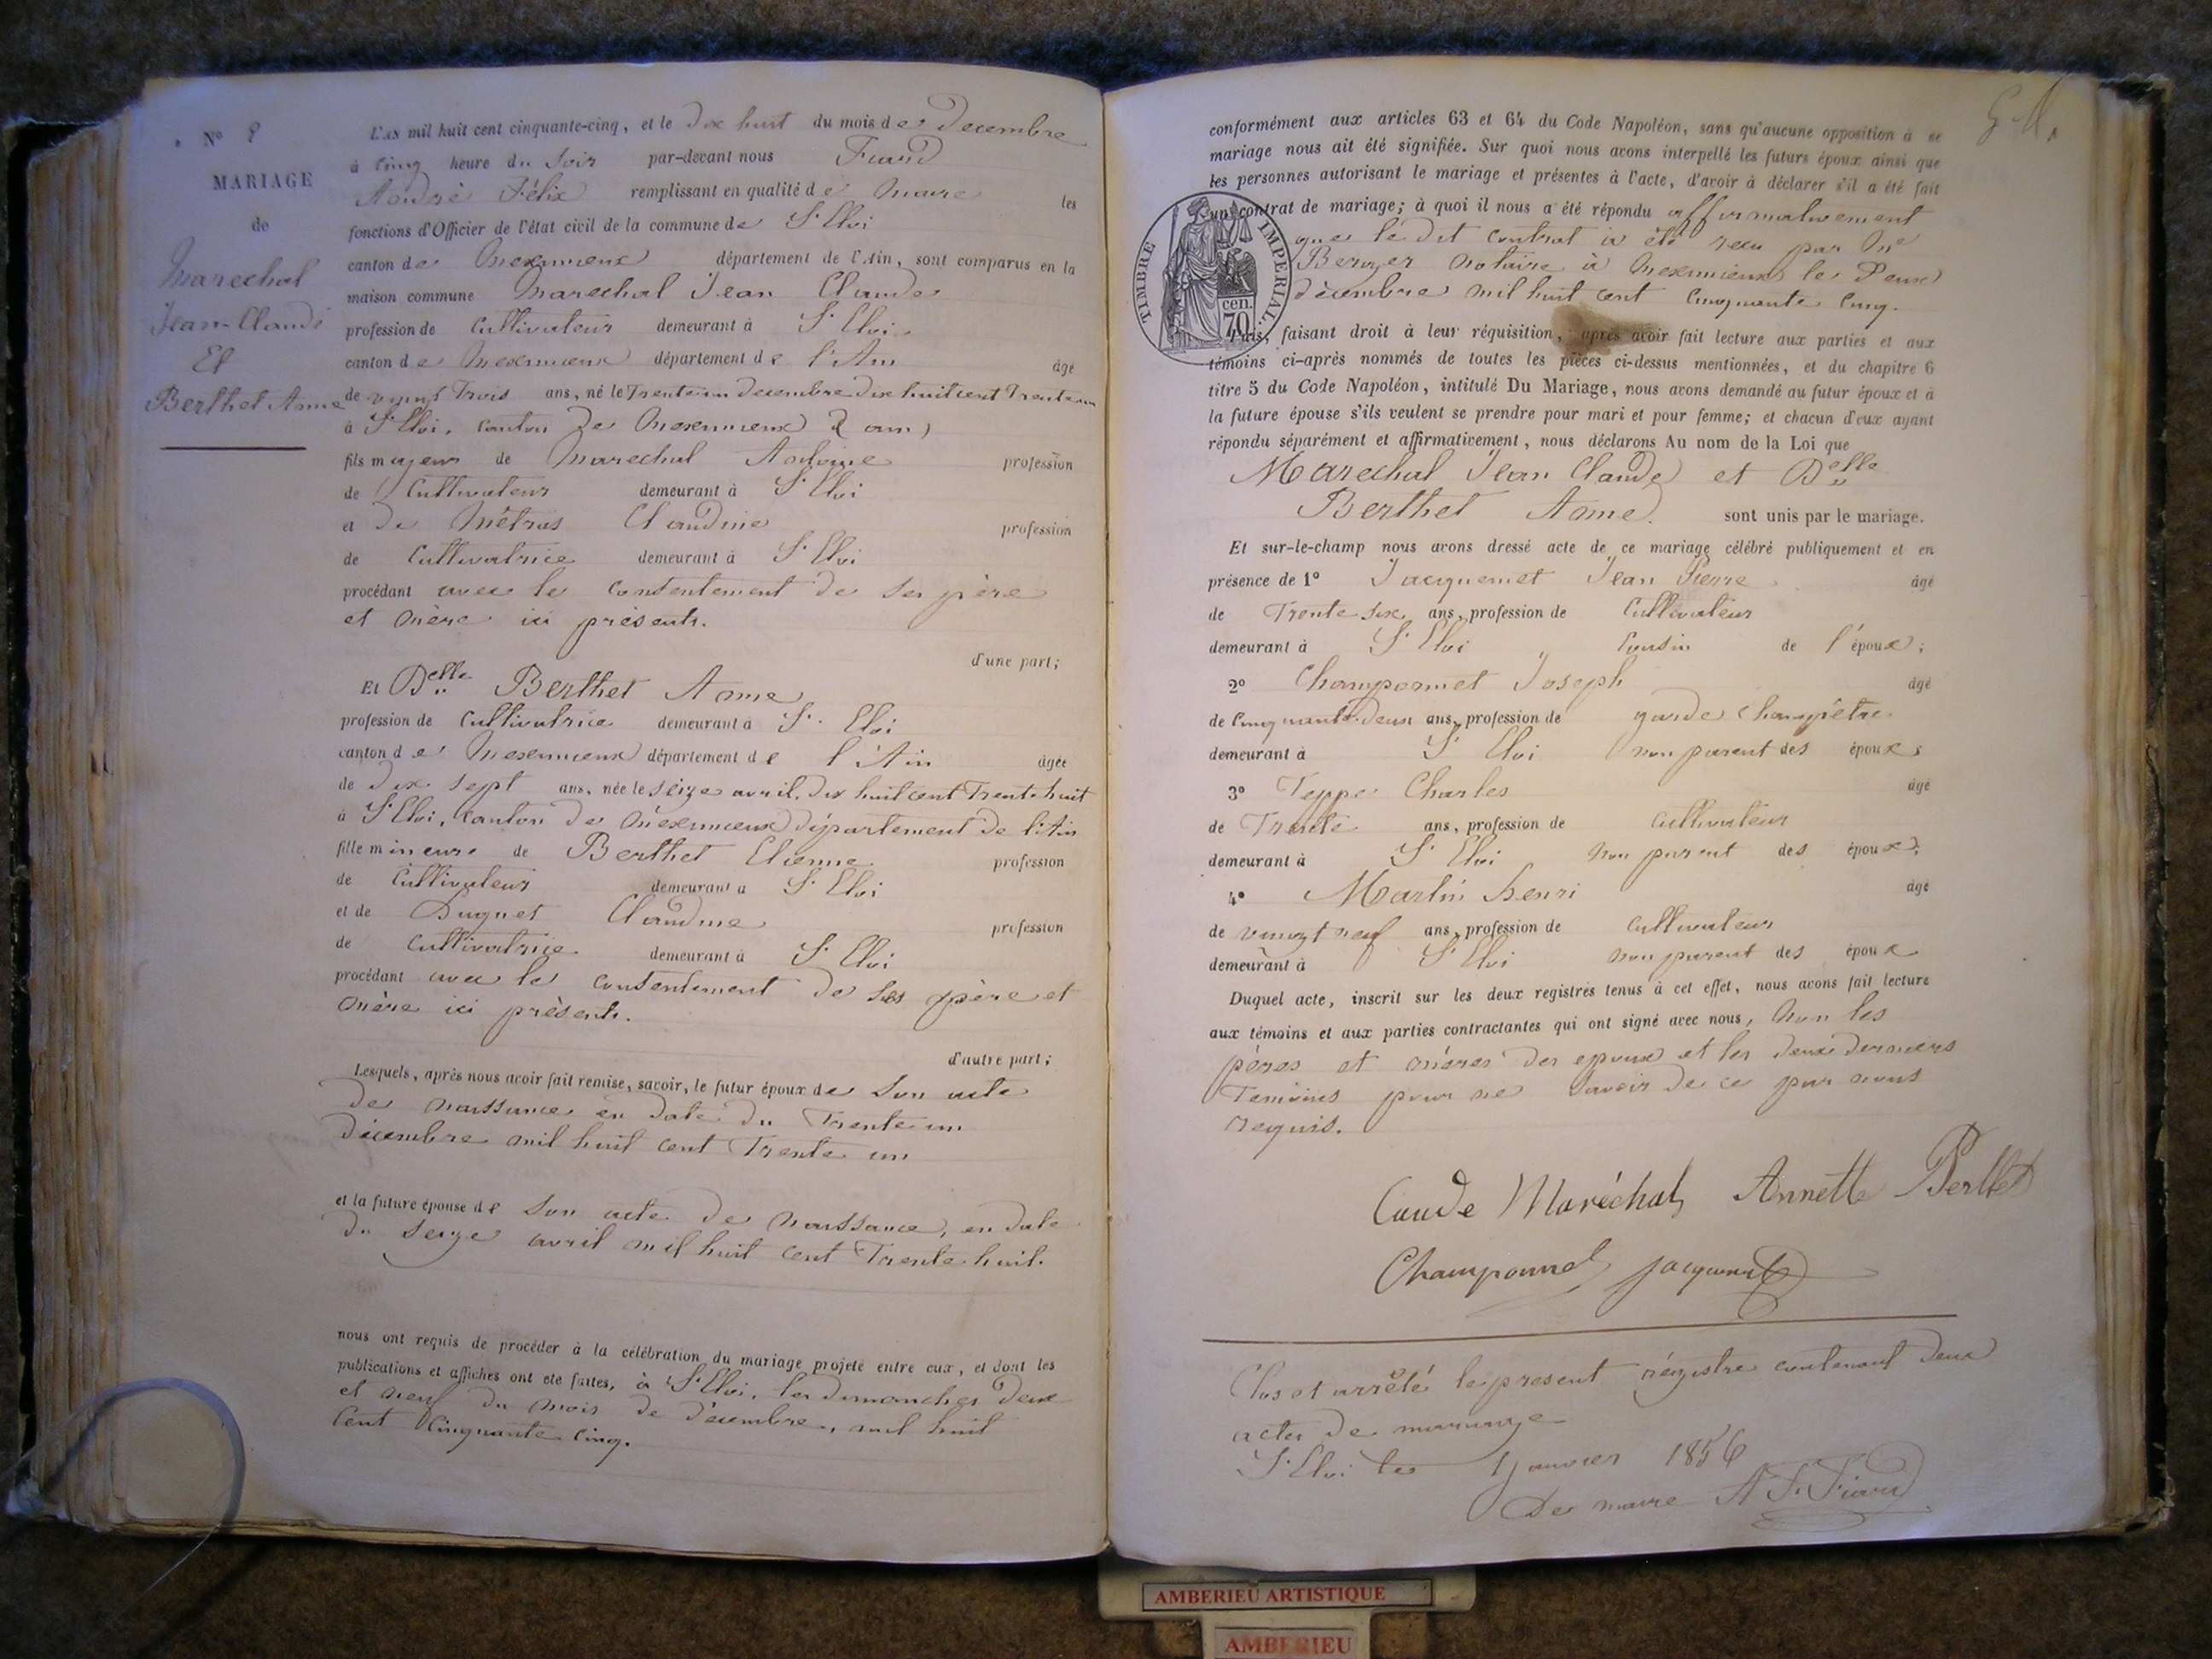 N° 8
MARIAGE
de
Marechal
Jean-Claude
Et
Berthet Anne
L'AN mil huit cent cinquante-cinq, et le dix huit du mois de Decembre
à cinq heure du soir par-devant nous Fiard
André Félix remplissant en qualité de maire les
fonctions d'Officier de l'état civil de la commune de St Eloi
canton de Meximieux département de l'Ain, sont comparus en la
maison commune Marechal Jean Claude
profession de Cultivateur demeurant à St Eloi
canton de Meximieux département de l'Ain âgé
de vingt trois ans, né le Trente un Decembre dix huit cent Trente un
à St Eloi, canton de Meximieux (ain)
fils majeur de Marechal Antoine profession
de Cultivateur demeurant à St Eloi
et de Métras Claudine profession
de Cultivatrice demeurant à St Eloi
procédant avec le consentement de ses père
et mère ici présents.
d'une part;
Et Delle Berthet Anne
profession de Cultivatrice demeurant à St. Eloi
canton de Meximieux département de l'Ain âgée
de dix sept ans, née le seize avril, dix huit cent Trente huit
à St Eloi, canton de Méximieux département de l'Ain
fille mineure de Berthet Etienne profession
de Cultivateur demeurant à St Eloi
et de Duguet Claudine profession
de Cultivatrice demeurant à St Eloi
procédant avec le consentement de ses père et
mère ici présents.
d'autre part;
Lesquels, après nous avoir fait remise, savoir, le futur époux de son acte
de naissance en date du Trente un
décembre mil huit cent Trente un
et la future épouse de son acte de naissance, en date
du seize avril mil huit cent Trente huit.
nous ont requis de procéder à la célébration du mariage projeté entre eux, et dont les
publications et affiches ont été faites, à St Eloi, les dimanches deux
et neuf du mois de décembre, mil huit
cent cinquante cinq.
conformément aux articles 63 et 64 du Code Napoléon, sans qu'aucune opposition à ce
mariage nous ait été signifiée. Sur quoi nous avons interpellé les futurs époux ainsi que
les personnes autorisant le mariage et présentes à l'acte, d'avoir à déclarer s'il a été fait
un contrat de mariage; à quoi il nous a été répondu affirmativement
que le dit contrat à été recu par Me
Beroyer notaire à Meximieux le Deux
décembre mil huit cent cinquante cinq.
TIMBRE IMPERIAL.
70 cen.
Puis, faisant droit à leur réquisition, après avoir fait lecture aux parties et aux
témoins ci-après nommés de toutes les pièces ci-dessus mentionnées, et du chapitre 6
titre 5 du Code Napoléon, intitulé Du Mariage, nous avons demandé au futur époux et à
la future épouse s'ils veulent se prendre pour mari et pour femme; et chacun d'eux ayant
répondu séparément et affirmativement, nous déclarons Au nom de la Loi que
Marechal Jean Claude et Delle
Berthet Anne. sont unis par le mariage.
Et sur-le-champ nous avons dressé acte de ce mariage célébré publiquement et en
présence de 1° Jacquemet Jean Pierre âgé
de Trente six ans, profession de Cultivateur
demeurant à St Eloi Cousin de l'époux;
2° Champonnet Joseph âgé
de Cinquante deux ans, profession de garde champêtre
demeurant à St Eloi non parent des époux;
3° Teppe Charles âgé
de Trente ans, profession de Cultivateur
demeurant à St Eloi non parent des époux;
4° Martin henri âgé
de vingt neuf ans, profession de Cultivateur
demeurant à St Eloi non parent des époux
Duquel acte, inscrit sur les deux registres tenus à cet effet, nous avons fait lecture
aux témoins et aux parties contractantes qui ont signé avec nous, non les
pères et mères des epoux et les deux derniers
Temoins pour ne savoir de ce par nous
requis.
Caude Maréchal Annette Berthet
Champonnet Jacquemet
Clos et arrêté le present régistre contenant deux
actes de mariage
St Eloi le 1 janvier 1856
Le maire A F. Fiard
AMBERIEU ARTISTIQUE
AMBERIEU